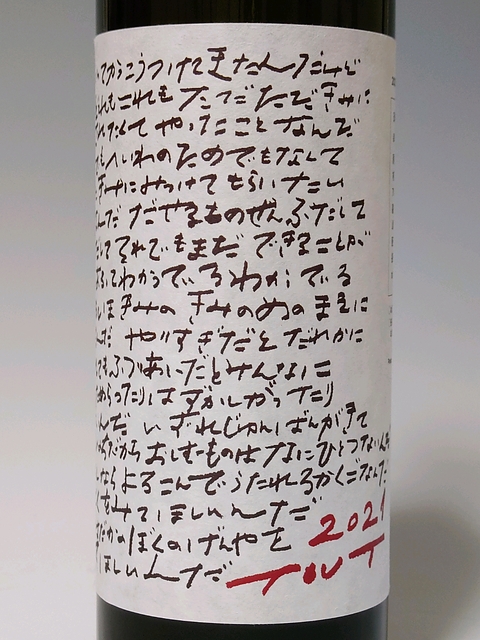 いてからこうつけてきたんだけど
れもこれも ただただきみに
れたくて やったことなんだ
へいわのためでもなして
きみにみつけてもらいたい
んだ だせるものぜんぶだして
してそれでもまだ できることが
らしてわかっているわかっている
いま きみの きみのめの まえに
んだ やりすぎだと だれかに
てもふつりあいだとみんなに
ためらったりは ずかしがったり
んだ いずれじゅんばんがきて
だから おしむものはなにひとつないん
ならよろこんで うたれるかくごなんだ
をみてほしいんだ
だかの ぼくのげんやを
ほしいんだ
2021
TOUT